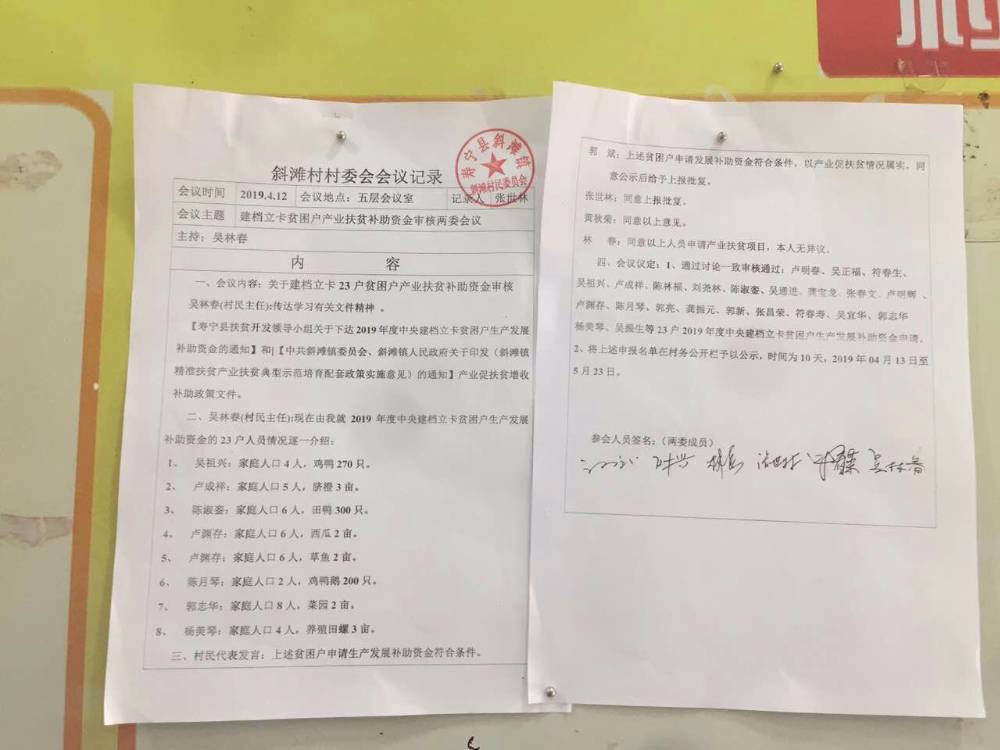 斜滩村村委会会议记录
寿宁县斜滩镇
斜滩村民委员会
会议时间 2019.4.12 会议地点：五层会议室 记录人 张世林
会议主题 建档立卡贫困户产业扶贫补助资金审核两委会议
主持：吴林春
内 容
一、会议内容：关于建档立卡 23 户贫困户产业扶贫补助资金审核
吴林春(村民主任):传达学习有关文件精神 。
【寿宁县扶贫开发领导小组关于下达 2019 年度中央建档立卡贫困户生产发展
补助资金的通知】和|【中共斜滩镇委员会、斜滩镇人民政府关于印发（斜滩镇
精准扶贫产业扶贫典型示范培育配套政策实施意见）的通知】产业促扶贫增收
补助政策文件。
二、吴林春(村民主任):现在由我就 2019 年度中央建档立卡贫困户生产发展
补助资金的 23 户人员情况逐一介绍：
1、 吴祖兴：家庭人口 4 人，鸡鸭 270 只。
2、 卢成祥：家庭人口 5 人，脐橙 3 亩。
3、 陈淑銮：家庭人口 6 人，田鸭 300 只。
4、 卢渊存：家庭人口 6 人，西瓜 2 亩。
5、 卢渊存：家庭人口 6 人，草鱼 2 亩。
6、 陈月琴：家庭人口 2 人，鸡鸭鹅 200 只。
7、 郭志华：家庭人口 8 人，菜园 2 亩。
8、 杨美琴：家庭人口 4 人，养殖田螺 3 亩。
三、村民代表发言：上述贫困户申请生产发展补助资金符合条件。
郭 斌：上述贫困户申请发展补助资金符合条件，以产业促扶贫情况属实，同
意公示后给予上报批复。
张世林：同意上报批复。
黄秋菊：同意以上意见。
林 春：同意以上人员申请产业扶贫项目，本人无异议。
四、会议议定：1、通过讨论一致审核通过：卢明春、吴正福、符春生、
吴祖兴、卢成祥、陈林福、刘尧林、陈淑銮、吴通进、龚宝龙、张春文、卢明辉 、
卢渊存、陈月琴、郭亮、龚振元、郭新、张昌荣、符春寿、吴宜华、郭志华
杨美琴、吴振生等 23 户 2019 年度中央建档立卡贫困户生产发展补助资金申请。
2、将上述申报名单在村务公开栏予以公示，时间为 10 天：2019 年 04 月 13 日至
5 月 23 日。
参会人员签名：（两委成员）
吴林春